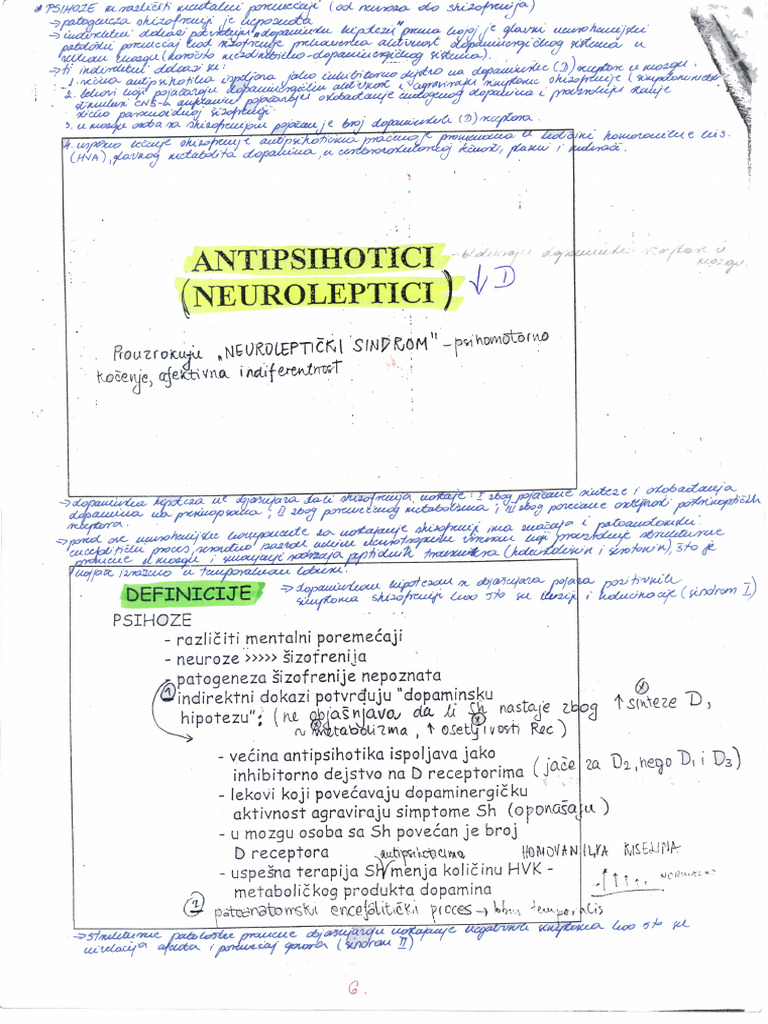 * PSIHOZE su različiti mentalni poremećaji (od neuroza do shizofrenija)
→ patogeneza shizofrenije je nepoznata
→ indirektni dokazi potvrđuju „dopaminsku hipotezu" prema kojoj je glavni neurohemijski
patološki poremećaj kod šizofrenije prekomerna aktivnost dopaminergičkog sistema u
mozgu (naročito mezolimbičko-dopaminergičkog sistema).
→ ti indirektni dokazi su:
1. većina antipsihotika ispoljava jako inhibitorno dejstvo na dopaminske (D) receptore u mozgu.
2. lekovi koji pojačavaju dopaminergičku aktivnost i agraviraju simptome shizofrenije
stimulansi CNS-a amfetamin pojačavaju oslobađanje endogenog dopamina i prouzrokuju stanje
slično paranoidnoj šizofreniji
3. u mozgu osoba sa shizofrenijom povećan je broj dopaminskih (D) receptora.
4. uspešno lečenje shizofrenije antipsihoticima praćeno je promenama u količini homovanilne kis.
(HVA), glavnog metabolita dopamina, u cerebrospinalnoj tečnosti, plazmi i mokraći.
ANTIPSIHOTICI – blokiraju dopaminske receptore u mozgu
(NEUROLEPTICI) ↓ D
Prouzrokuju „NEUROLEPTIČKI SINDROM" – psihomotorno
kočenje, afektivna indiferentnost
→ dopaminska hipoteza ne objašnjava da li shizofrenija nastaje: I zbog pojačane sinteze i oslobađanja
dopamina na presinapsama; II zbog poremećenog metabolizma; III zbog povećane osetljivosti postsinaptičkih
receptora.
→ pored ove neurohemijske komponente za nastajanje shizofrenije ima značaja i patoanatomski
encefalitički proces, koji prouzrokuje strukturne
promene u mozgu i smanjenje sadržaja peptidnih transmitera, što je
najviše izraženo u temporalnom lobusu.
DEFINICIJE → dopaminskom hipotezom se objašnjava pojava pozitivnih
simptoma shizofrenije kao što su iluzije i halucinacije (sindrom I)
PSIHOZE
- različiti mentalni poremećaji
- neuroze >>>>> šizofrenija
- patogeneza šizofrenije nepoznata
① indirektni dokazi potvrđuju "dopaminsku
hipotezu": (ne objašnjava da li Sh nastaje zbog ↑ sinteze D,
~ metabolizma, ↑ osetljivosti Rec)
- većina antipsihotika ispoljava jako
inhibitorno dejstvo na D receptorima (jače za D2, nego D1 i D3)
- lekovi koji povećavaju dopaminergičku
aktivnost agraviraju simptome Sh (oponašaju)
- u mozgu osoba sa Sh povećan je broj
D receptora antipsihoticima HOMOVANILNA KISELINA
- uspešna terapija Sh menja količinu HVK -
metaboličkog produkta dopamina ↑↑↑↑ NORMALNO
② patoanatomski encefalitički proces → lobus temporalis
→ strukturne patološke promene objašnjavaju nastajanje negativnih simptoma kao što su
nivelacija afekta i poremećaj govora (sindrom II)
6.